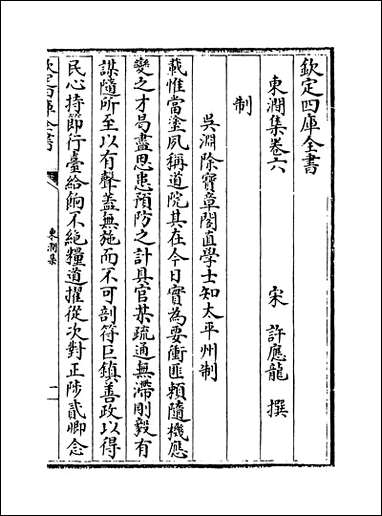 欽定四庫全書
東澗集卷六
宋 許應龍 撰
制
吳淵除寶章閣直學士知太平州制
載惟當塗夙稱道院其在今日實為要衝匪頼隨機應
變之才曷盡思患預防之計具官某疏通無滯剛毅有
謀隨所至以有聲蓋無施而不可剖符巨鎮善政以得
民心持節行臺給餉不絶糧道擢從次對正陟貳卿念
欽定四庫全書
東澗集
一